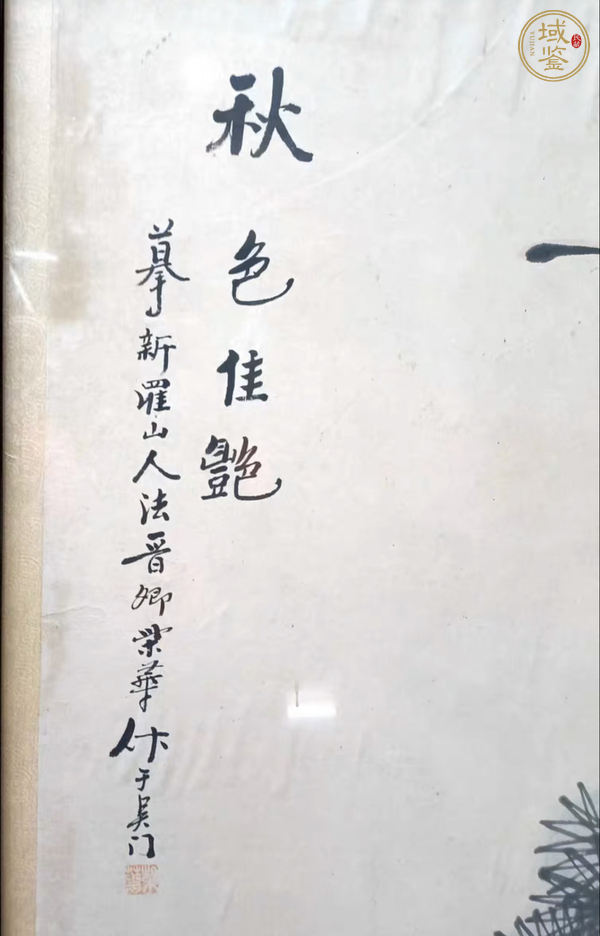 秋色佳艷
摹新羅山人法晋卿荣華作于吴门
域鉴
YUJIAN